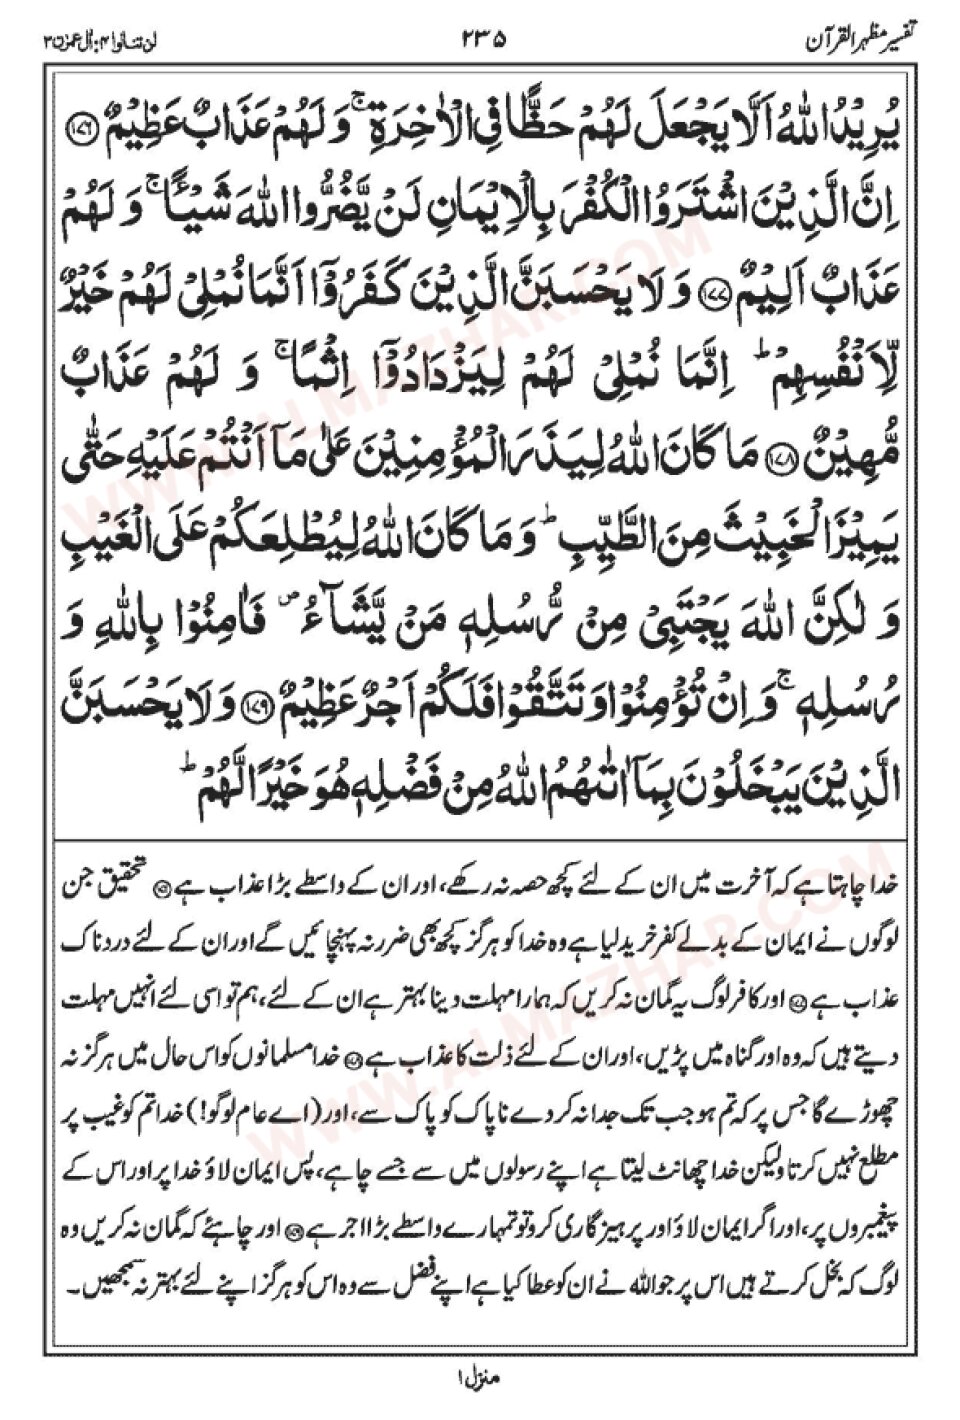 تفسیر مظہر القرآن
۲۳۵
لن تنالوا ۴: اٰل عمرٰن ۳
یُرِیْدُ اللّٰهُ اَلَّا یَجْعَلَ لَهُمْ حَظًّا فِی الْاٰخِرَةِ ۚ وَ لَهُمْ عَذَابٌ عَظِیْمٌ ۝۱۷۶
اِنَّ الَّذِیْنَ اشْتَرَوُا الْكُفْرَ بِالْاِیْمَانِ لَنْ یَّضُرُّوا اللّٰهَ شَیْـًٔا ۚ وَ لَهُمْ
عَذَابٌ اَلِیْمٌ ۝۱۷۷ وَ لَا یَحْسَبَنَّ الَّذِیْنَ كَفَرُوْۤا اَنَّمَا نُمْلِیْ لَهُمْ خَیْرٌ
لِّاَنْفُسِهِمْ ؕ اِنَّمَا نُمْلِیْ لَهُمْ لِیَزْدَادُوْۤا اِثْمًا ۚ وَ لَهُمْ عَذَابٌ
مُّهِیْنٌ ۝۱۷۸ مَا كَانَ اللّٰهُ لِیَذَرَ الْمُؤْمِنِیْنَ عَلٰی مَاۤ اَنْتُمْ عَلَیْهِ حَتّٰی
یَمِیْزَ الْخَبِیْثَ مِنَ الطَّیِّبِ ؕ وَ مَا كَانَ اللّٰهُ لِیُطْلِعَكُمْ عَلَی الْغَیْبِ
وَ لٰكِنَّ اللّٰهَ یَجْتَبِیْ مِنْ رُّسُلِهٖ مَنْ یَّشَآءُ ۪ فَاٰمِنُوْا بِاللّٰهِ وَ
رُسُلِهٖ ۚ وَ اِنْ تُؤْمِنُوْا وَ تَتَّقُوْا فَلَكُمْ اَجْرٌ عَظِیْمٌ ۝۱۷۹ وَ لَا یَحْسَبَنَّ
الَّذِیْنَ یَبْخَلُوْنَ بِمَاۤ اٰتٰىهُمُ اللّٰهُ مِنْ فَضْلِهٖ هُوَ خَیْرًا لَّهُمْ ؕ
خدا چاہتا ہے کہ آخرت میں ان کے لئے کچھ حصہ نہ رکھے، اور ان کے واسطے بڑا عذاب ہے ۝۱۷۶ تحقیق جن
لوگوں نے ایمان کے بدلے کفر خرید لیا ہے وہ خدا کو ہرگز کچھ بھی ضرر نہ پہنچائیں گے اور ان کے لئے دردناک
عذاب ہے ۝۱۷۷ اور کافر لوگ یہ گمان نہ کریں کہ ہمارا مہلت دینا بہتر ہے ان کے لئے، ہم تو اسی لئے انہیں مہلت
دیتے ہیں کہ وہ اور گناہ میں پڑیں، اور ان کے لئے ذلت کا عذاب ہے ۝۱۷۸ خدا مسلمانوں کو اس حال میں ہرگز نہ
چھوڑے گا جس پر کہ تم ہو جب تک جدا نہ کر دے ناپاک کو پاک سے، اور (اے عام لوگو!) خدا تم کو غیب پر
مطلع نہیں کرتا ولیکن خدا چھانٹ لیتا ہے اپنے رسولوں میں سے جسے چاہے، پس ایمان لاؤ خدا پر اور اس کے
پیغمبروں پر، اور اگر ایمان لاؤ اور پرہیزگاری کرو تو تمہارے واسطے بڑا اجر ہے ۝۱۷۹ اور چاہئے کہ گمان نہ کریں وہ
لوگ کہ بخل کرتے ہیں اس پر جو اللہ نے ان کو عطا کیا ہے اپنے فضل سے وہ اس کو ہرگز اپنے لئے بہتر نہ سمجھیں۔
منزل ۱
WWW.ALMAZHAR.COM
WWW.ALMAZHAR.COM